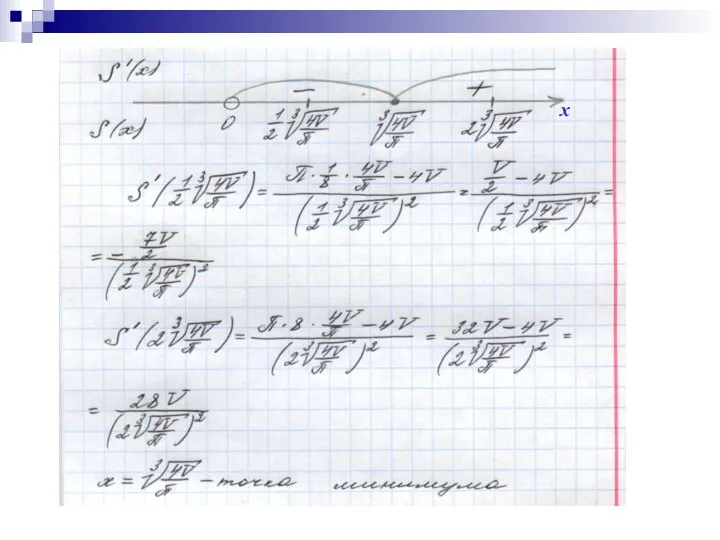 S'(x) − +
S(x) 0 1/2 ∛(4V/π) ∛(4V/π) 2∛(4V/π) x
S'(1/2 ∛(4V/π)) = (π · 1/8 · 4V/π − 4V)/(1/2 ∛(4V/π))² = (V/2 − 4V)/(1/2 ∛(4V/π))² =
= − (7V/2)/(1/2 ∛(4V/π))²
S'(2∛(4V/π)) = (π · 8 · 4V/π − 4V)/(2∛(4V/π))² = (32V − 4V)/(2∛(4V/π))² =
= 28V/(2∛(4V/π))²
x = ∛(4V/π) − точка минимума